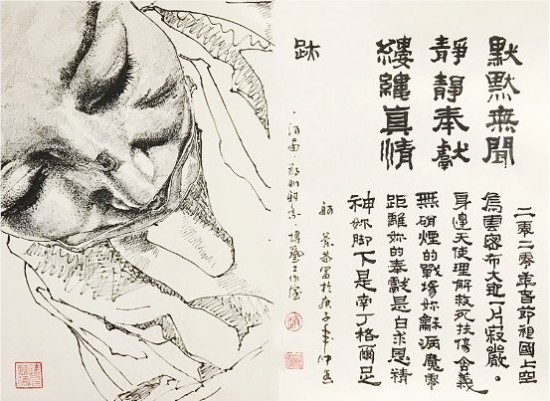 默默無聞
靜靜奉獻
縷縷真情
二零二零年春節祖國上空
烏雲密布大地一片寂嚴。
身邊天使理解救死扶傷含義
無硝煙的戰場妳龢病魔零
距離妳的奉獻是白求恩精
神妳脚下是南丁格爾足
跡
書於庚子年仲春
河南·鄭州 博藝工作室